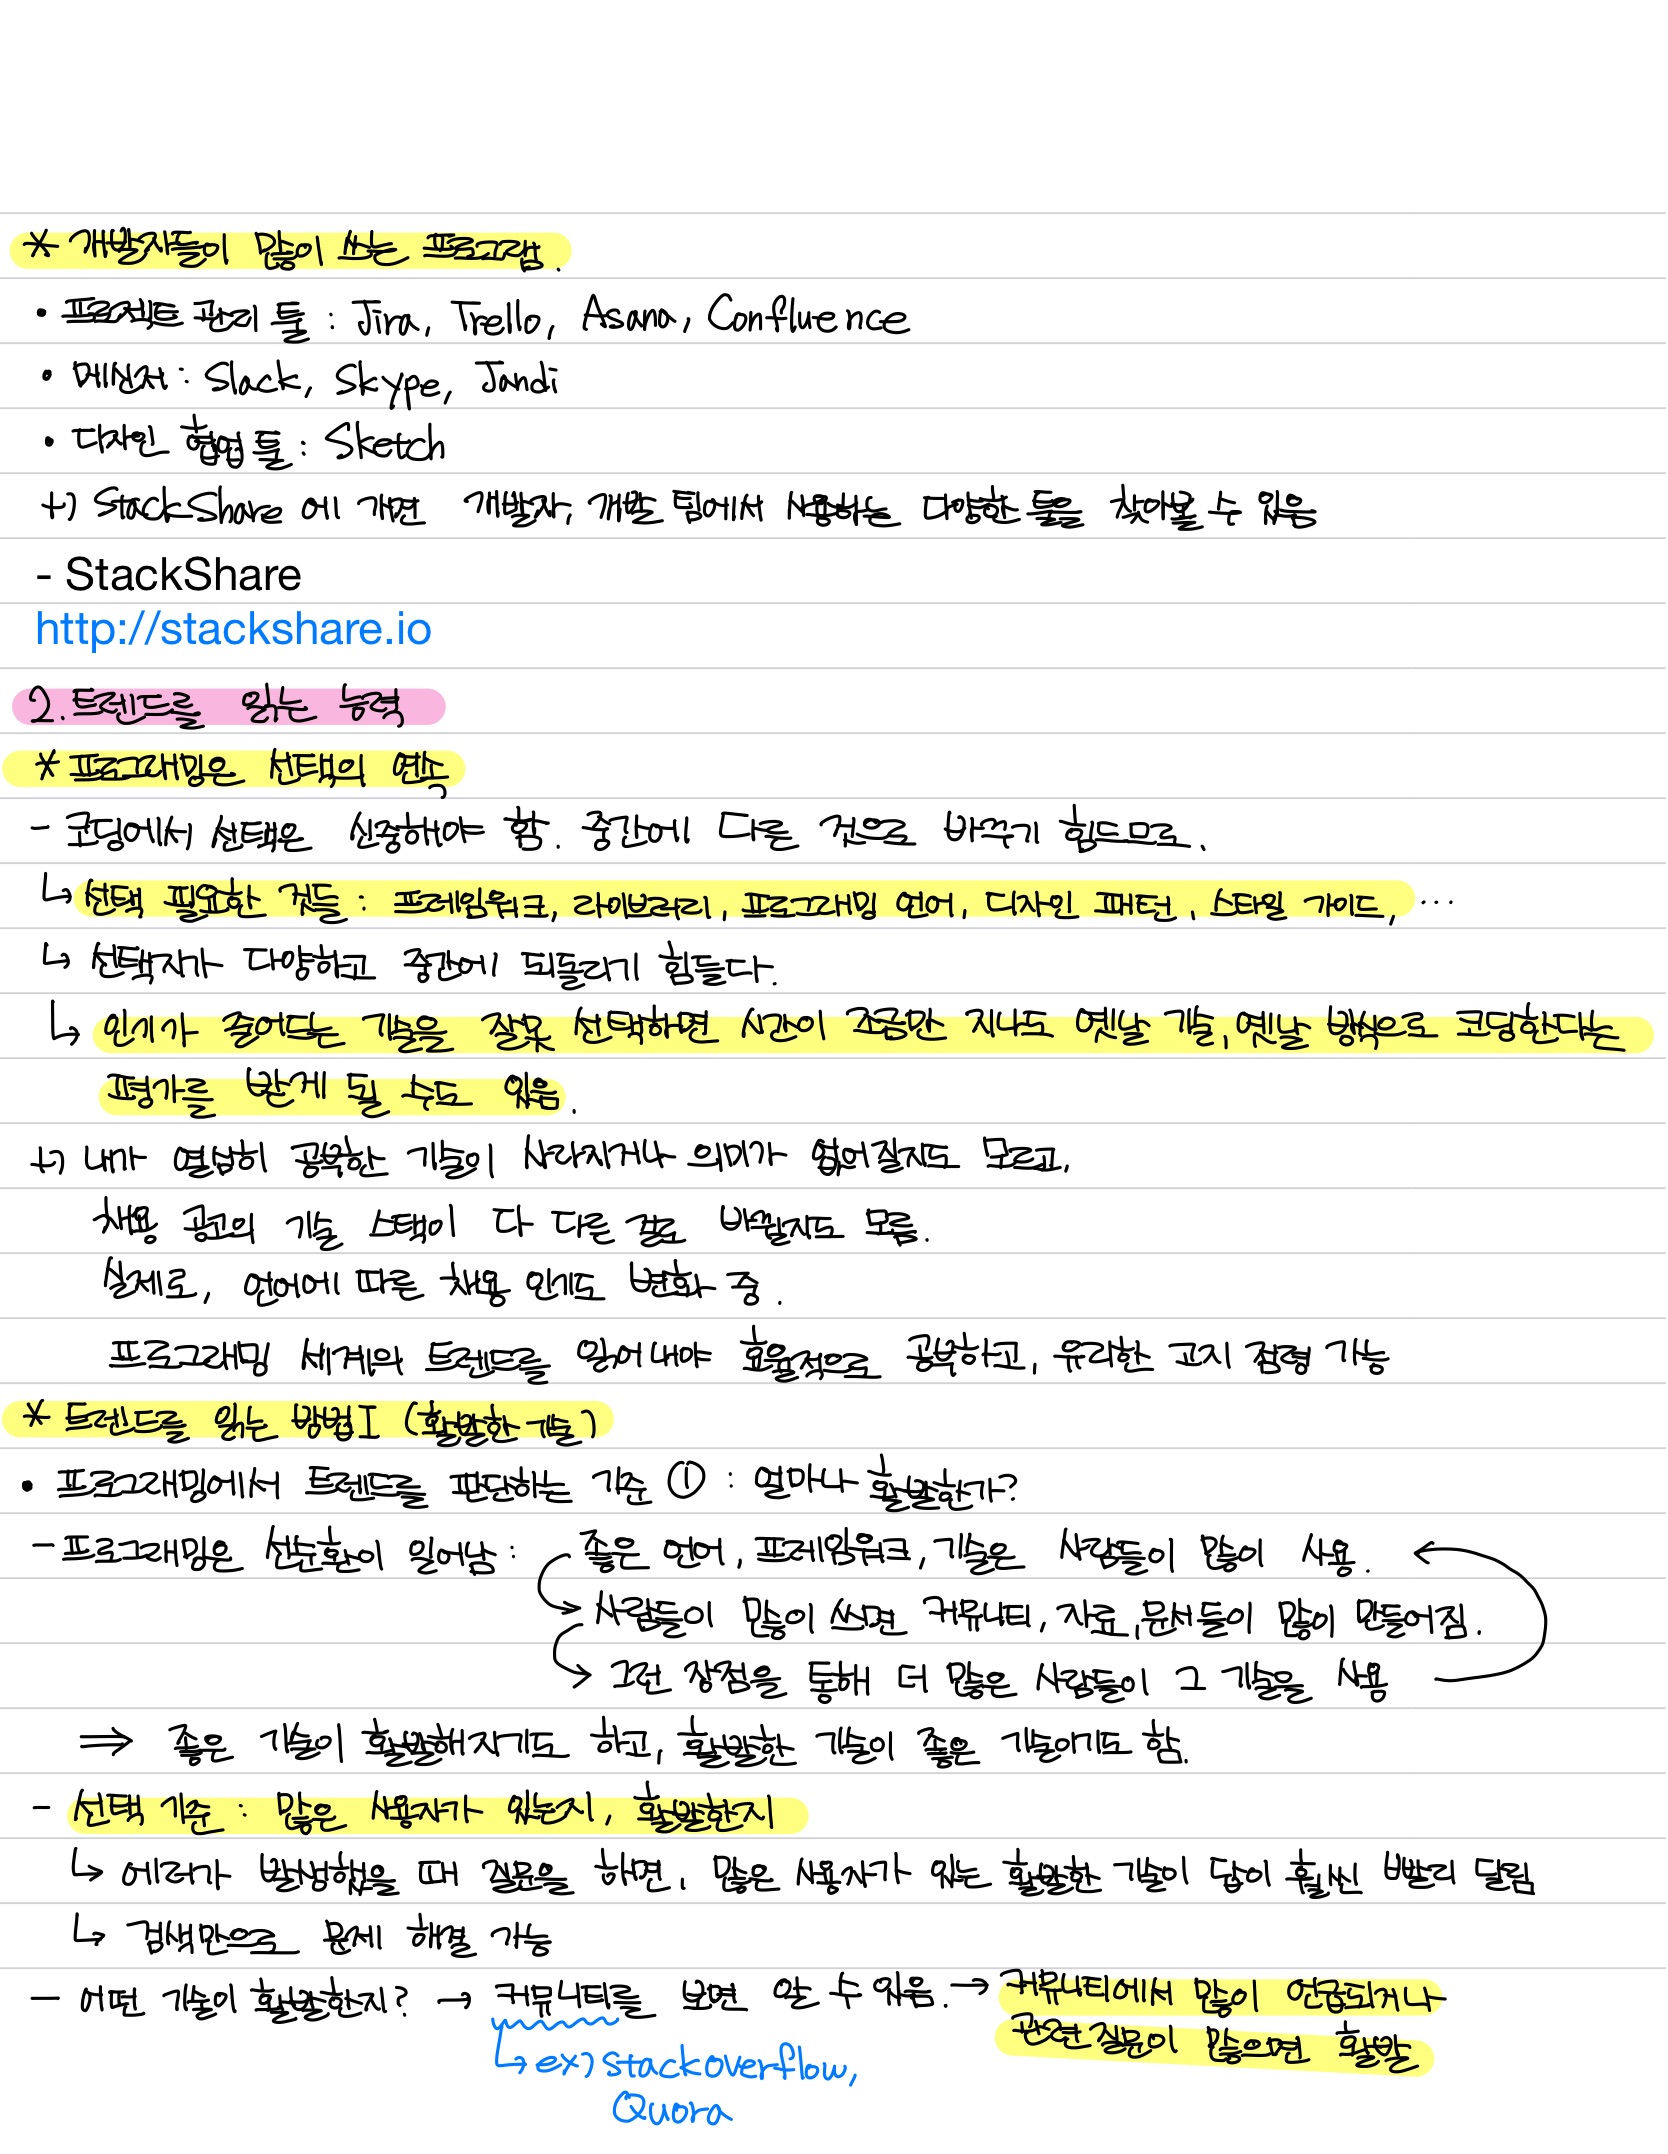 * 개발자들이 많이 쓰는 프로그램.
• 프로젝트 관리 툴 : Jira, Trello, Asana, Confluence
• 메신저 : Slack, Skype, Jandi
• 디자인 협업 툴 : Sketch
+) StackShare 에 가면 개발자, 개발 팀에서 사용하는 다양한 툴을 찾아볼 수 있음
- StackShare
http://stackshare.io
2. 트렌드를 읽는 능력
* 프로그래밍은 선택의 연속
- 코딩에서 선택은 신중해야 함. 중간에 다른 것으로 바꾸기 힘드므로.
↳ 선택 필요한 것들 : 프레임워크, 라이브러리, 프로그래밍 언어, 디자인 패턴, 스타일 가이드, ...
↳ 선택지가 다양하고 중간에 되돌리기 힘들다.
↳ 인기가 줄어드는 기술을 잘못 선택하면 시간이 조금만 지나도 옛날 기술, 옛날 방식으로 코딩한다는
평가를 받게 될 수도 있음.
+) 내가 열심히 공부한 기술이 사라지거나 의미가 없어질지도 모르고,
채용 공고의 기술 스택이 다 다른 걸로 바뀔지도 모름.
실제로, 언어에 따른 채용 인기도 변화 중.
프로그래밍 세계의 트렌드를 읽어내야 효율적으로 공부하고, 유리한 고지 점령 가능
* 트렌드를 읽는 방법 I (활발한 기술)
• 프로그래밍에서 트렌드를 판단하는 기준 ① : 얼마나 활발한가?
- 프로그래밍은 선순환이 일어남 : 좋은 언어, 프레임워크, 기술은 사람들이 많이 사용. ←
→ 사람들이 많이 쓰면 커뮤니티, 자료, 문서들이 많이 만들어짐.
→ 그런 장점을 통해 더 많은 사람들이 그 기술을 사용
⇒ 좋은 기술이 활발해지기도 하고, 활발한 기술이 좋은 기술이기도 함.
- 선택 기준 : 많은 사용자가 있는지, 활발한지
↳ 에러가 발생했을 때 질문을 하면, 많은 사용자가 있는 활발한 기술이 답이 훨씬 빨리 달림
↳ 검색만으로 문제 해결 가능
- 어떤 기술이 활발한지? → 커뮤니티를 보면 알 수 있음. → 커뮤니티에서 많이 언급되거나
관련 질문이 많으면 활발
↳ ex) stackoverflow,
Quora